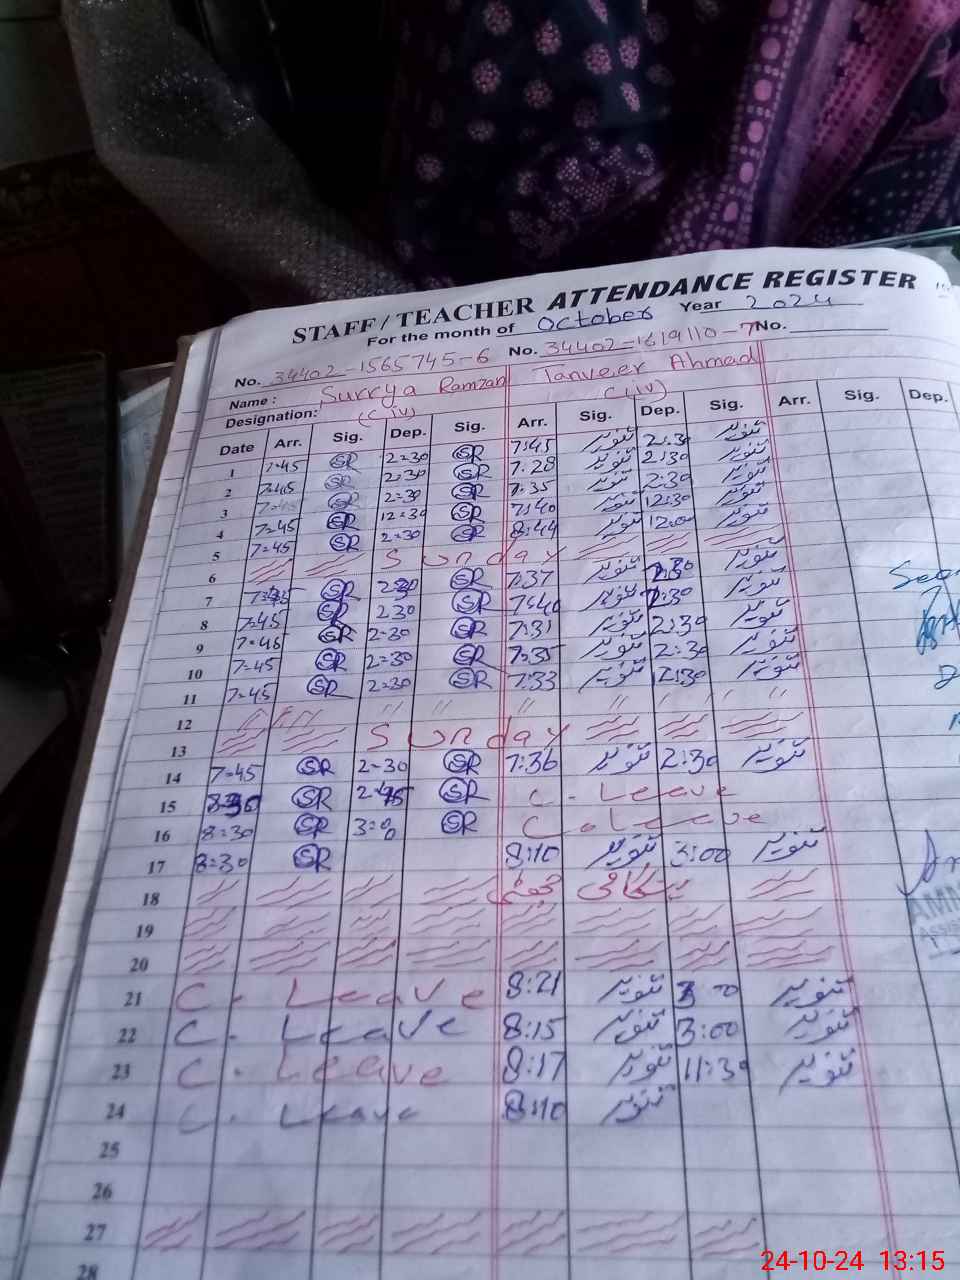 STAFF / TEACHER ATTENDANCE REGISTER
For the month of October Year 2024
No. 34402-1565745-6 No. 34402-1619110-7 No.
Name : Surrya Ramzan Tanveer Ahmad
Designation: (C iv) (C iv)
Date Arr. Sig. Dep. Sig. Arr. Sig. Dep. Sig. Arr. Sig. Dep.
1 7:45 SR 2:30 SR 7:45 تنویر 2:30 تنویر
2 7:45 SR 2:30 SR 7:28 تنویر 2:30 تنویر
3 7:45 SR 2:30 SR 7:35 تنویر 2:30 تنویر
4 7:45 SR 12:30 SR 7:40 تنویر 12:30 تنویر
5 7:45 SR 2:30 SR 8:44 تنویر 12:00 تنویر
6 Sunday
7 SR 230 SR 7:37 تنویر 2:30 تنویر
8 7:45 SR 230 SR 7:40 تنویر 2:30 تنویر
9 7:45 SR 2:30 SR 7:31 تنویر 2:30 تنویر
10 7:45 SR 2:30 SR 7:35 تنویر 2:30 تنویر
11 7:45 SR 2:30 SR 7:33 تنویر 12:30 تنویر
12 " " " " " " " "
13 Sunday
14 7:45 SR 2:30 SR 7:36 تنویر 2:30 تنویر
15 SR 2:45 SR C. Leave
16 8:30 SR 3:0 SR C. Leave
17 8:30 SR 8:10 تنویر 3:00 تنویر
18 مقامی چھٹی
19
20
21 C. Leave 8:21 تنویر 3:00 تنویر
22 C. Leave 8:15 تنویر 3:00 تنویر
23 C. Leave 8:17 تنویر 11:30 تنویر
24 C. Leave 8:10 تنویر
25
26
27
28
24-10-24 13:15